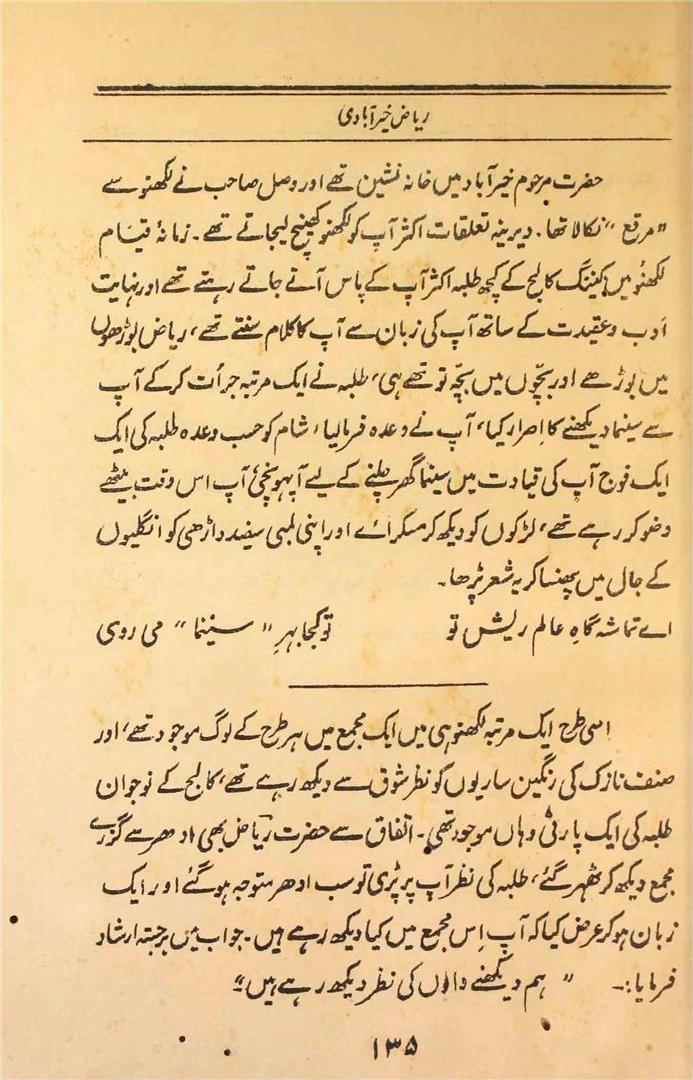 ریاض خیرآبادی
حضرت مرحوم خیرآباد میں خانہ نشین تھے اور وصل صاحب نے لکھنو سے
"مرقع" نکالا تھا۔ دیرینہ تعلقات اکثر آپ کو لکھنو کھینچ لیجاتے تھے۔ زمانۂ قیام
لکھنؤ میں کیننگ کالج کے کچھ طلبہ اکثر آپ کے پاس آتے جاتے رہتے تھے اور نہایت
اَدب و عقیدت کے ساتھ آپ کی زبان سے آپ کا کلام سنتے تھے، ریاض بوڑھوں
میں بوڑھے اور بچّوں میں بچّہ تو تھے ہی، طلبہ نے ایک مرتبہ جرأت کرکے آپ
سے سینما دیکھنے کا اِصرار کیا، آپ نے وعدہ فرمالیا، شام کو حسب وعدہ طلبہ کی ایک
ایک فوج آپ کی قیادت میں سینما گھر چلنے کے لیے آپہونچی، آپ اس وقت بیٹھے
وضو کر رہے تھے، لڑکوں کو دیکھ کر مسکرائے اور اپنی لمبی سفید داڑھی کو انگلیوں
کے جال میں پھنسا کر یہ شعر پڑھا۔
اے تماشہ گاہِ عالم ریش تو تو کجا بہرِ "سینما" می روی
اسی طرح ایک مرتبہ لکھنو ہی میں ایک مجمع میں ہر طرح کے لوگ موجود تھے، اور
صنف نازک کی رنگین ساریوں کو نظر شوق سے دیکھ رہے تھے، کالج کے نوجوان
طلبہ کی ایک پارٹی وہاں موجود تھی۔ اتفاق سے حضرت ریاض بھی ادھر سے گزرے
مجمع دیکھ کر ٹھہر گئے، طلبہ کی نظر آپ پر پڑی تو سب ادھر متوجہ ہو گئے اور ایک
زبان ہو کر عرض کیا کہ آپ اِس مجمع میں کیا دیکھ رہے ہیں۔ جواب میں برجستہ ارشاد
فرمایا:۔ "ہم دیکھنے والوں کی نظر دیکھ رہے ہیں"
۱۳۵